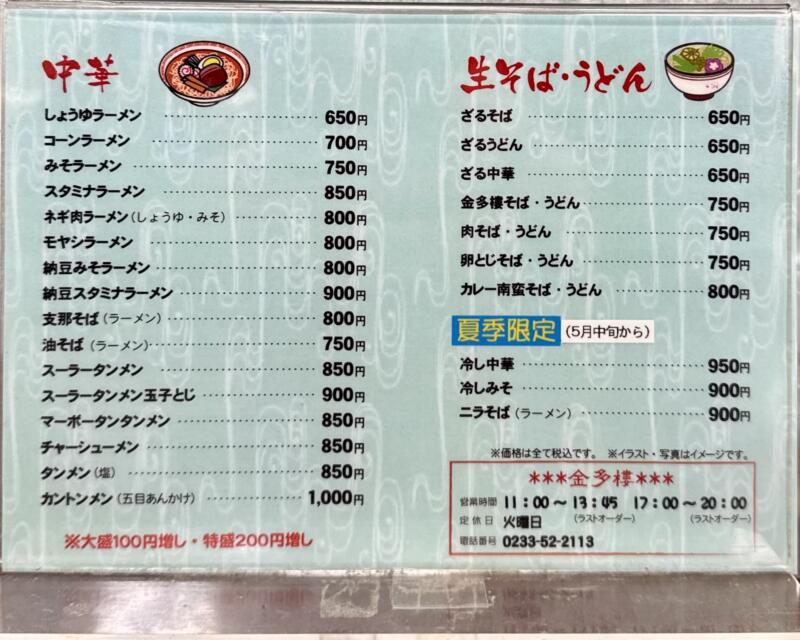 中華
しょうゆラーメン 650円
コーンラーメン 700円
みそラーメン 750円
スタミナラーメン 850円
ネギ肉ラーメン（しょうゆ・みそ） 800円
モヤシラーメン 800円
納豆みそラーメン 800円
納豆スタミナラーメン 900円
支那そば（ラーメン） 800円
油そば（ラーメン） 750円
スーラータンメン 850円
スーラータンメン玉子とじ 900円
マーボータンタンメン 850円
チャーシューメン 850円
タンメン（塩） 850円
カントンメン（五目あんかけ） 1,000円
※大盛100円増し・特盛200円増し
生そば・うどん
ざるそば 650円
ざるうどん 650円
ざる中華 650円
金多樓そば・うどん 750円
肉そば・うどん 750円
卵とじそば・うどん 750円
カレー南蛮そば・うどん 800円
夏季限定（5月中旬から）
冷し中華 950円
冷しみそ 900円
ニラそば（ラーメン） 900円
※価格は全て税込です。 ※イラスト・写真はイメージです。
***金多樓***
営業時間 11：00～13：45 17：00～20：00
定休日 火曜日 （ラストオーダー） （ラストオーダー）
電話番号 0233-52-2113